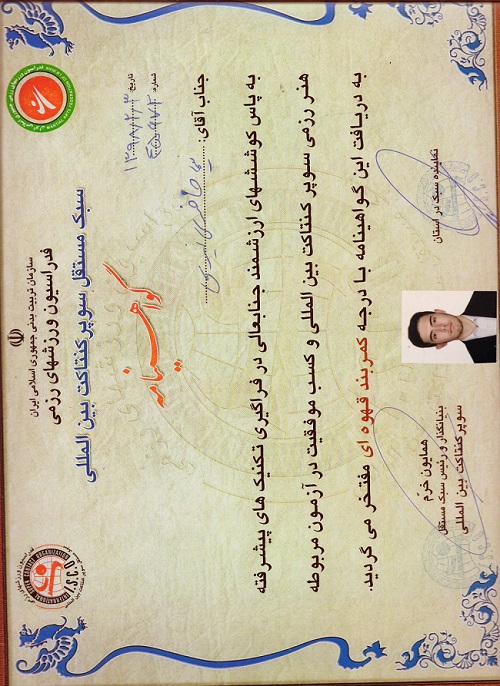 سازمان تربیت بدنی جمهوری اسلامی ایران
فدراسیون ورزشهای رزمی
سبک مستقل سوپرکنتاکت بین المللی
I.S.C.O
گواهینامه
تاریخ:
شماره:
جناب آقای:
به پاس کوششهای ارزشمند جنابعالی در فراگیری تکنیک های پیشرفته
هنر رزمی سوپر کنتاکت بین المللی و کسب موفقیت در آزمون مربوطه
به دریافت این گواهینامه با درجه کمربند قهوه ای مفتخر می گردید.
نماینده سبک در استان
همایون خرم
بنیانگذار و رئیس سبک مستقل
سوپرکنتاکت بین المللی